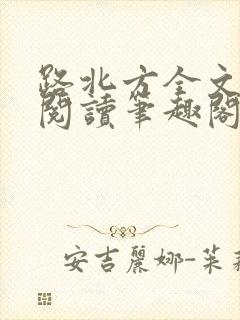 路北方全文
閱讀筆趣閣
安吉麗娜-茱莉